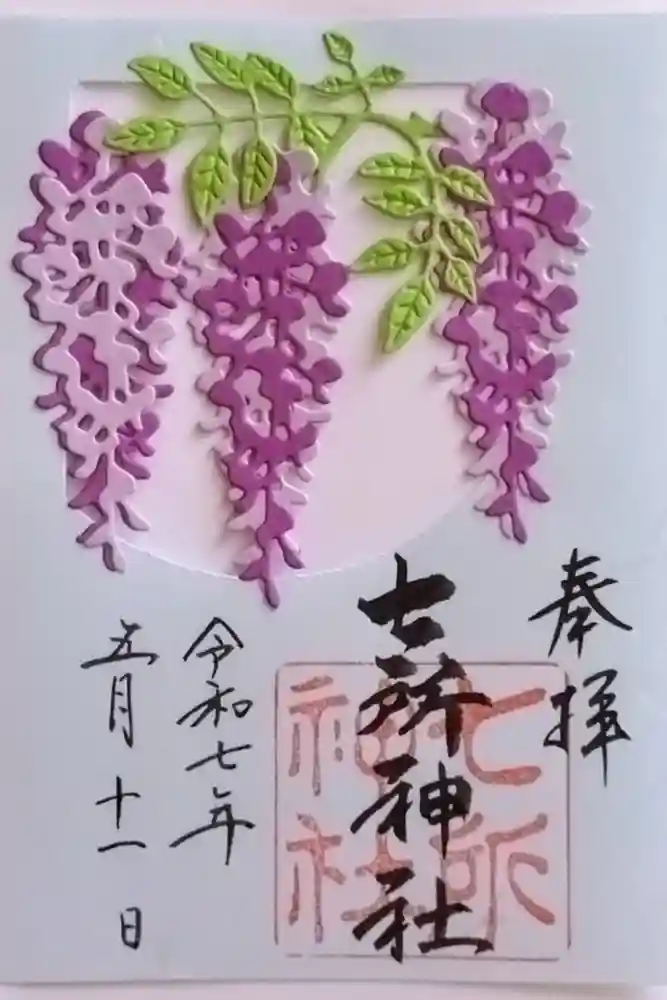 奉拝
七所神社
七所
神社
令和七年
五月十一日